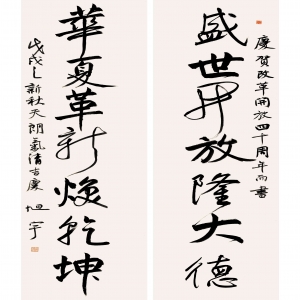 慶賀改革開放四十周年而書
盛世開放隆大德
華夏革新煥乾坤
戊戌之新秋天朗氣清吉慶 旭宇